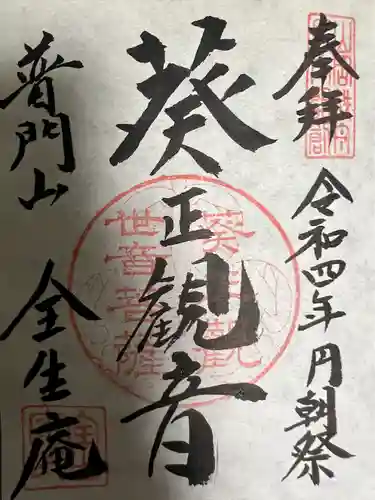 奉拝
令和四年円朝祭
葵正観音
葵正観
世音菩薩
普門山
全生庵